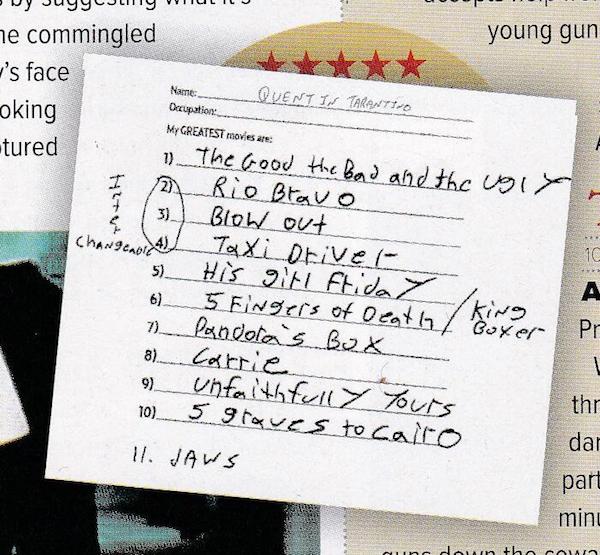 by suggesting what it's
commingled
's face
oking
otured
young gun
Name: QUENTIN TARANTINO
Occupation:
My GREATEST movies are:
1) The Good the Bad and the Ugly
2) Rio Bravo
3) Blow out
4) Taxi Driver
Inter changeable
5) His girl Friday
6) 5 Fingers of Death / King Boxer
7) Pandora's Box
8) Carrie
9) Unfaithfully Yours
10) 5 graves to Cairo
11. JAWS
10
A
Pr
thr
dar
part
minu
guns down the cowa